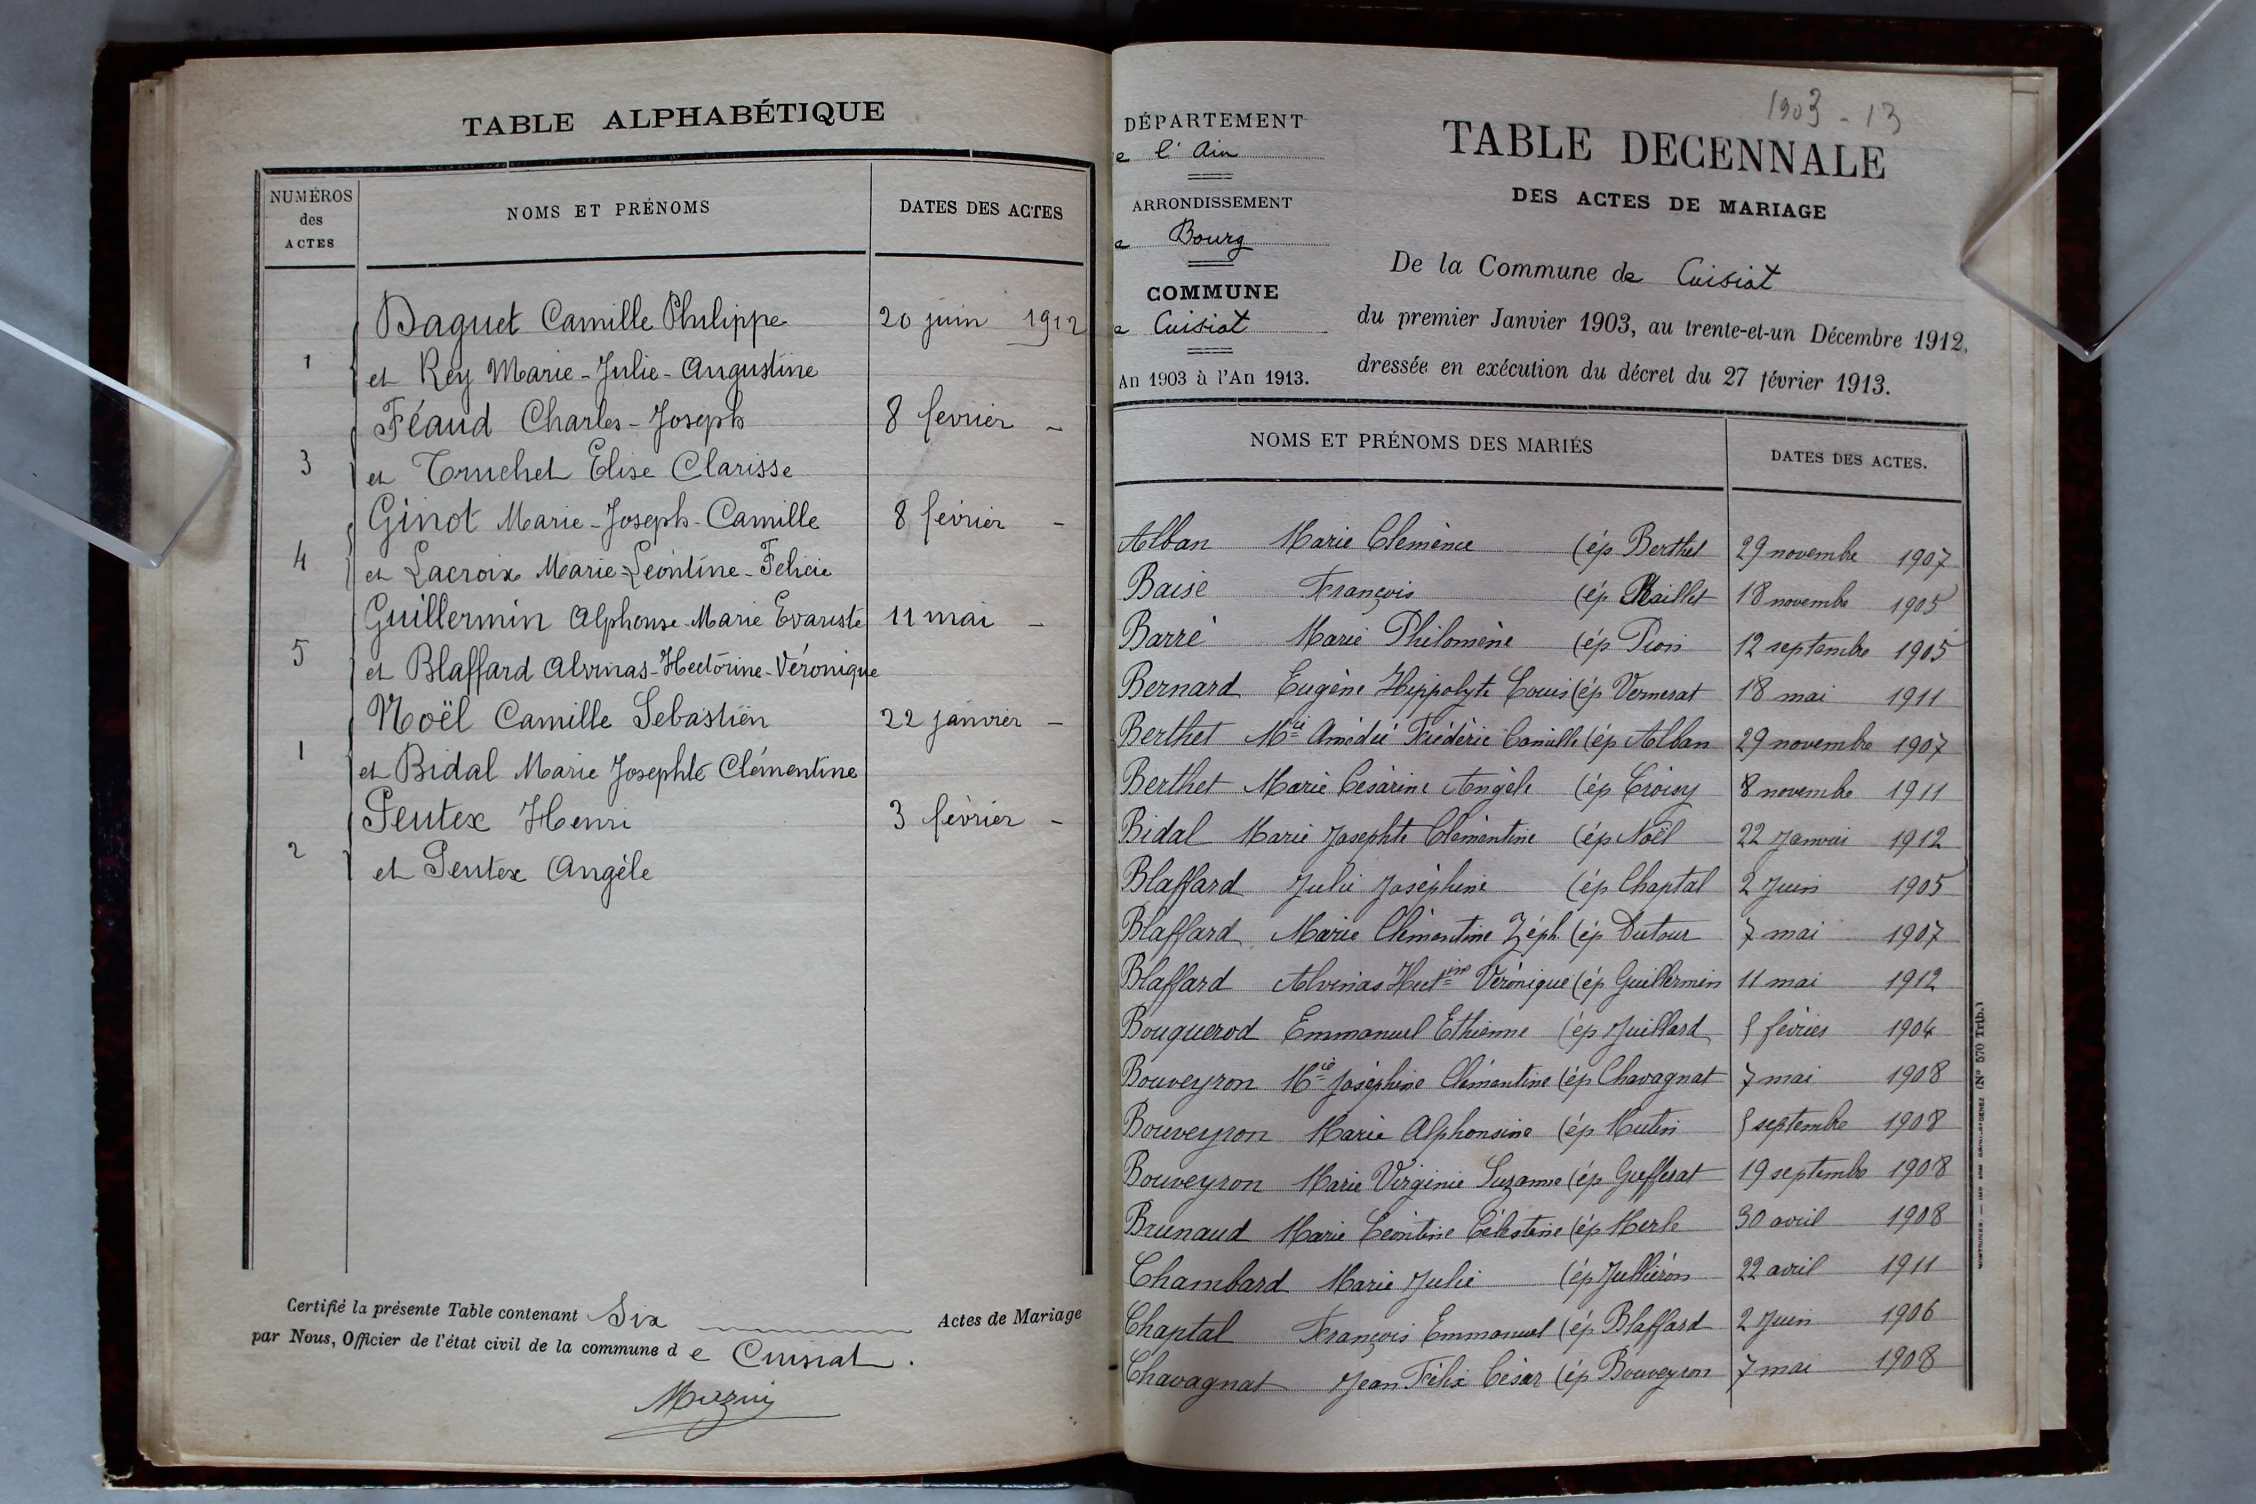 TABLE ALPHABÉTIQUE
NUMÉROS des ACTES
NOMS ET PRÉNOMS
DATES DES ACTES
Daguet Camille Philippe 20 juin 1912
1 et Rey Marie-Julie-Augustine
Féaud Charles-Joseph 8 février -
3 et Truchet Elise Clarisse
Ginot Marie-Joseph-Camille 8 février -
4 et Lacroix Marie-Léontine-Félicie
Guillermin Alphonse-Marie Evariste 11 mai -
5 et Blaffard Alvinas-Hectorine-Véronique
Noël Camille Sébastien 22 janvier -
1 et Bidal Marie Josephte Clémentine
Peutex Henri 3 février -
2 et Peutex Angèle
Certifié la présente Table contenant Six Actes de Mariage
par Nous, Officier de l'état civil de la commune de Cuisiat.
1903 - 13
DÉPARTEMENT
e l'Ain
ARRONDISSEMENT
e Bourg
COMMUNE
e Cuisiat
An 1903 à l'An 1913.
TABLE DECENNALE
DES ACTES DE MARIAGE
De la Commune de Cuisiat
du premier Janvier 1903, au trente-et-un Décembre 1912,
dressée en exécution du décret du 27 février 1913.
NOMS ET PRÉNOMS DES MARIÉS
DATES DES ACTES.
Alban Marie Clémence (ép Berthet 29 novembre 1907
Baise François (ép Maillet 18 novembre 1905
Barré Marie Philomène (ép Pion 12 septembre 1905
Bernard Eugène Hippolyte Louis (ép Vernerat 18 mai 1911
Berthet Mie Amédée Frédéric Camille (ép Alban 29 novembre 1907
Berthet Marie Césarine Angèle (ép Croisy 8 novembre 1911
Bidal Marie Josephte Clémentine (ép Noël 22 Janvier 1912
Blaffard Julie Joséphine (ép Chaptal 2 Juin 1905
Blaffard Marie Clémentine Zéph. (ép Dutour 7 mai 1907
Blaffard Alvinas Hectine Véronique (ép Guillermin 11 mai 1912
Bouquerod Emmanuel Ethienne (ép Juillard 5 février 1904
Bouveyron Mie Joséphine Clémentine (ép Chavagnat 7 mai 1908
Bouveyron Marie Alphonsine (ép Mutin 5 septembre 1908
Bouveyron Marie Virginie Suzanne (ép Guefferat 19 septembre 1908
Brunaud Marie Léontine Célestine (ép Merle 30 avril 1908
Chambard Marie Julie (ép Jullieron 22 avril 1911
Chaptal François Emmanuel (ép Blaffard 2 Juin 1906
Chavagnat Jean Félix César (ép Bouveyron 7 mai 1908
(N° 570 Trib.)